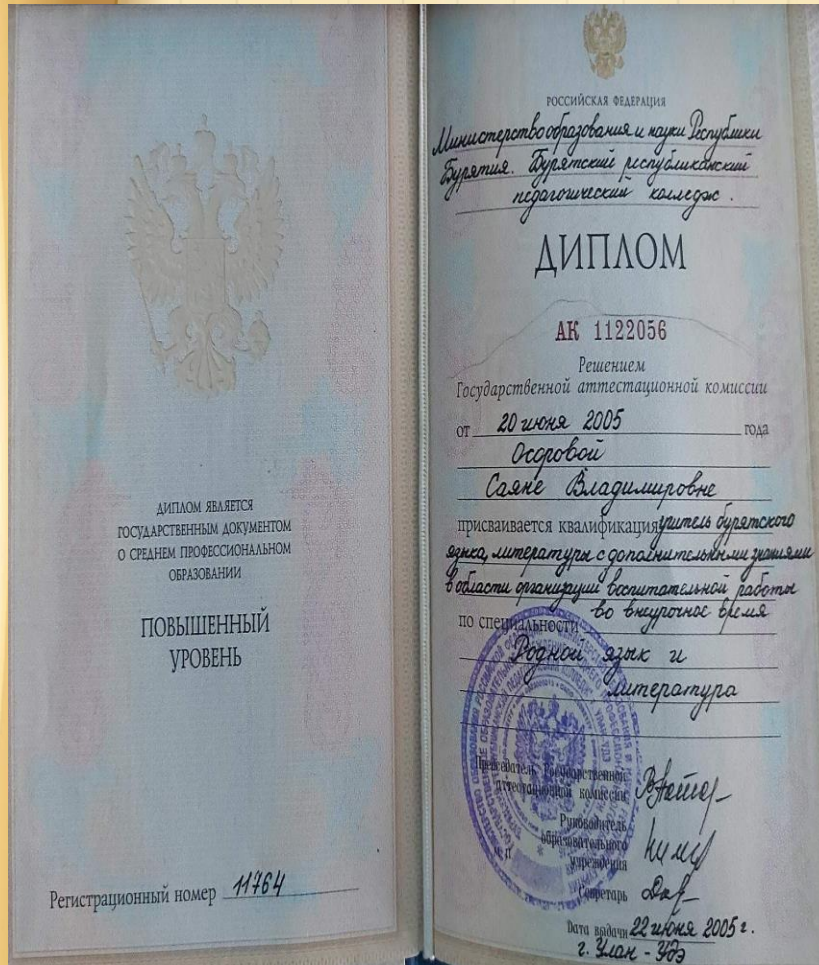 ДИПЛОМ ЯВЛЯЕТСЯ
ГОСУДАРСТВЕННЫМ ДОКУМЕНТОМ
О СРЕДНЕМ ПРОФЕССИОНАЛЬНОМ
ОБРАЗОВАНИИ
ПОВЫШЕННЫЙ
УРОВЕНЬ
Регистрационный номер 11764
РОССИЙСКАЯ ФЕДЕРАЦИЯ
Министерство образования и науки Республики
Бурятия. Бурятский республиканский
педагогический колледж.
ДИПЛОМ
АК 1122056
Решением
Государственной аттестационной комиссии
от 20 июня 2005 года
Осоровой
Саяне Владимировне
присваивается квалификация учитель бурятского
языка, литературы с дополнительными знаниями
в области организации воспитательной работы
во внеурочное время
по специальности
Родной язык и
литература
Председатель Государственной
аттестационной комиссии
Руководитель
образовательного
учреждения
Секретарь
Дата выдачи 22 июня 2005 г.
г. Улан-Удэ